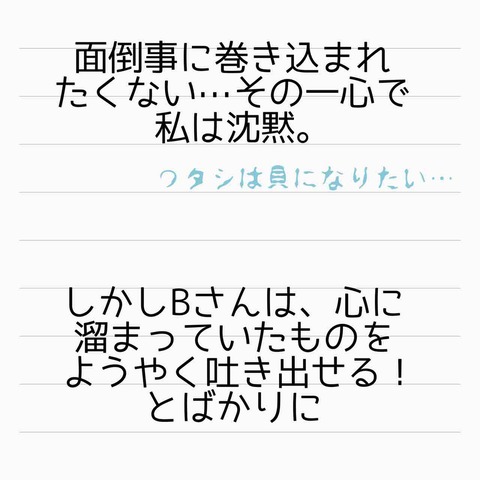 面倒事に巻き込まれ
たくない…その一心で
私は沈黙。
ワタシは貝になりたい…
しかしBさんは、心に
溜まっていたものを
ようやく吐き出せる！
とばかりに